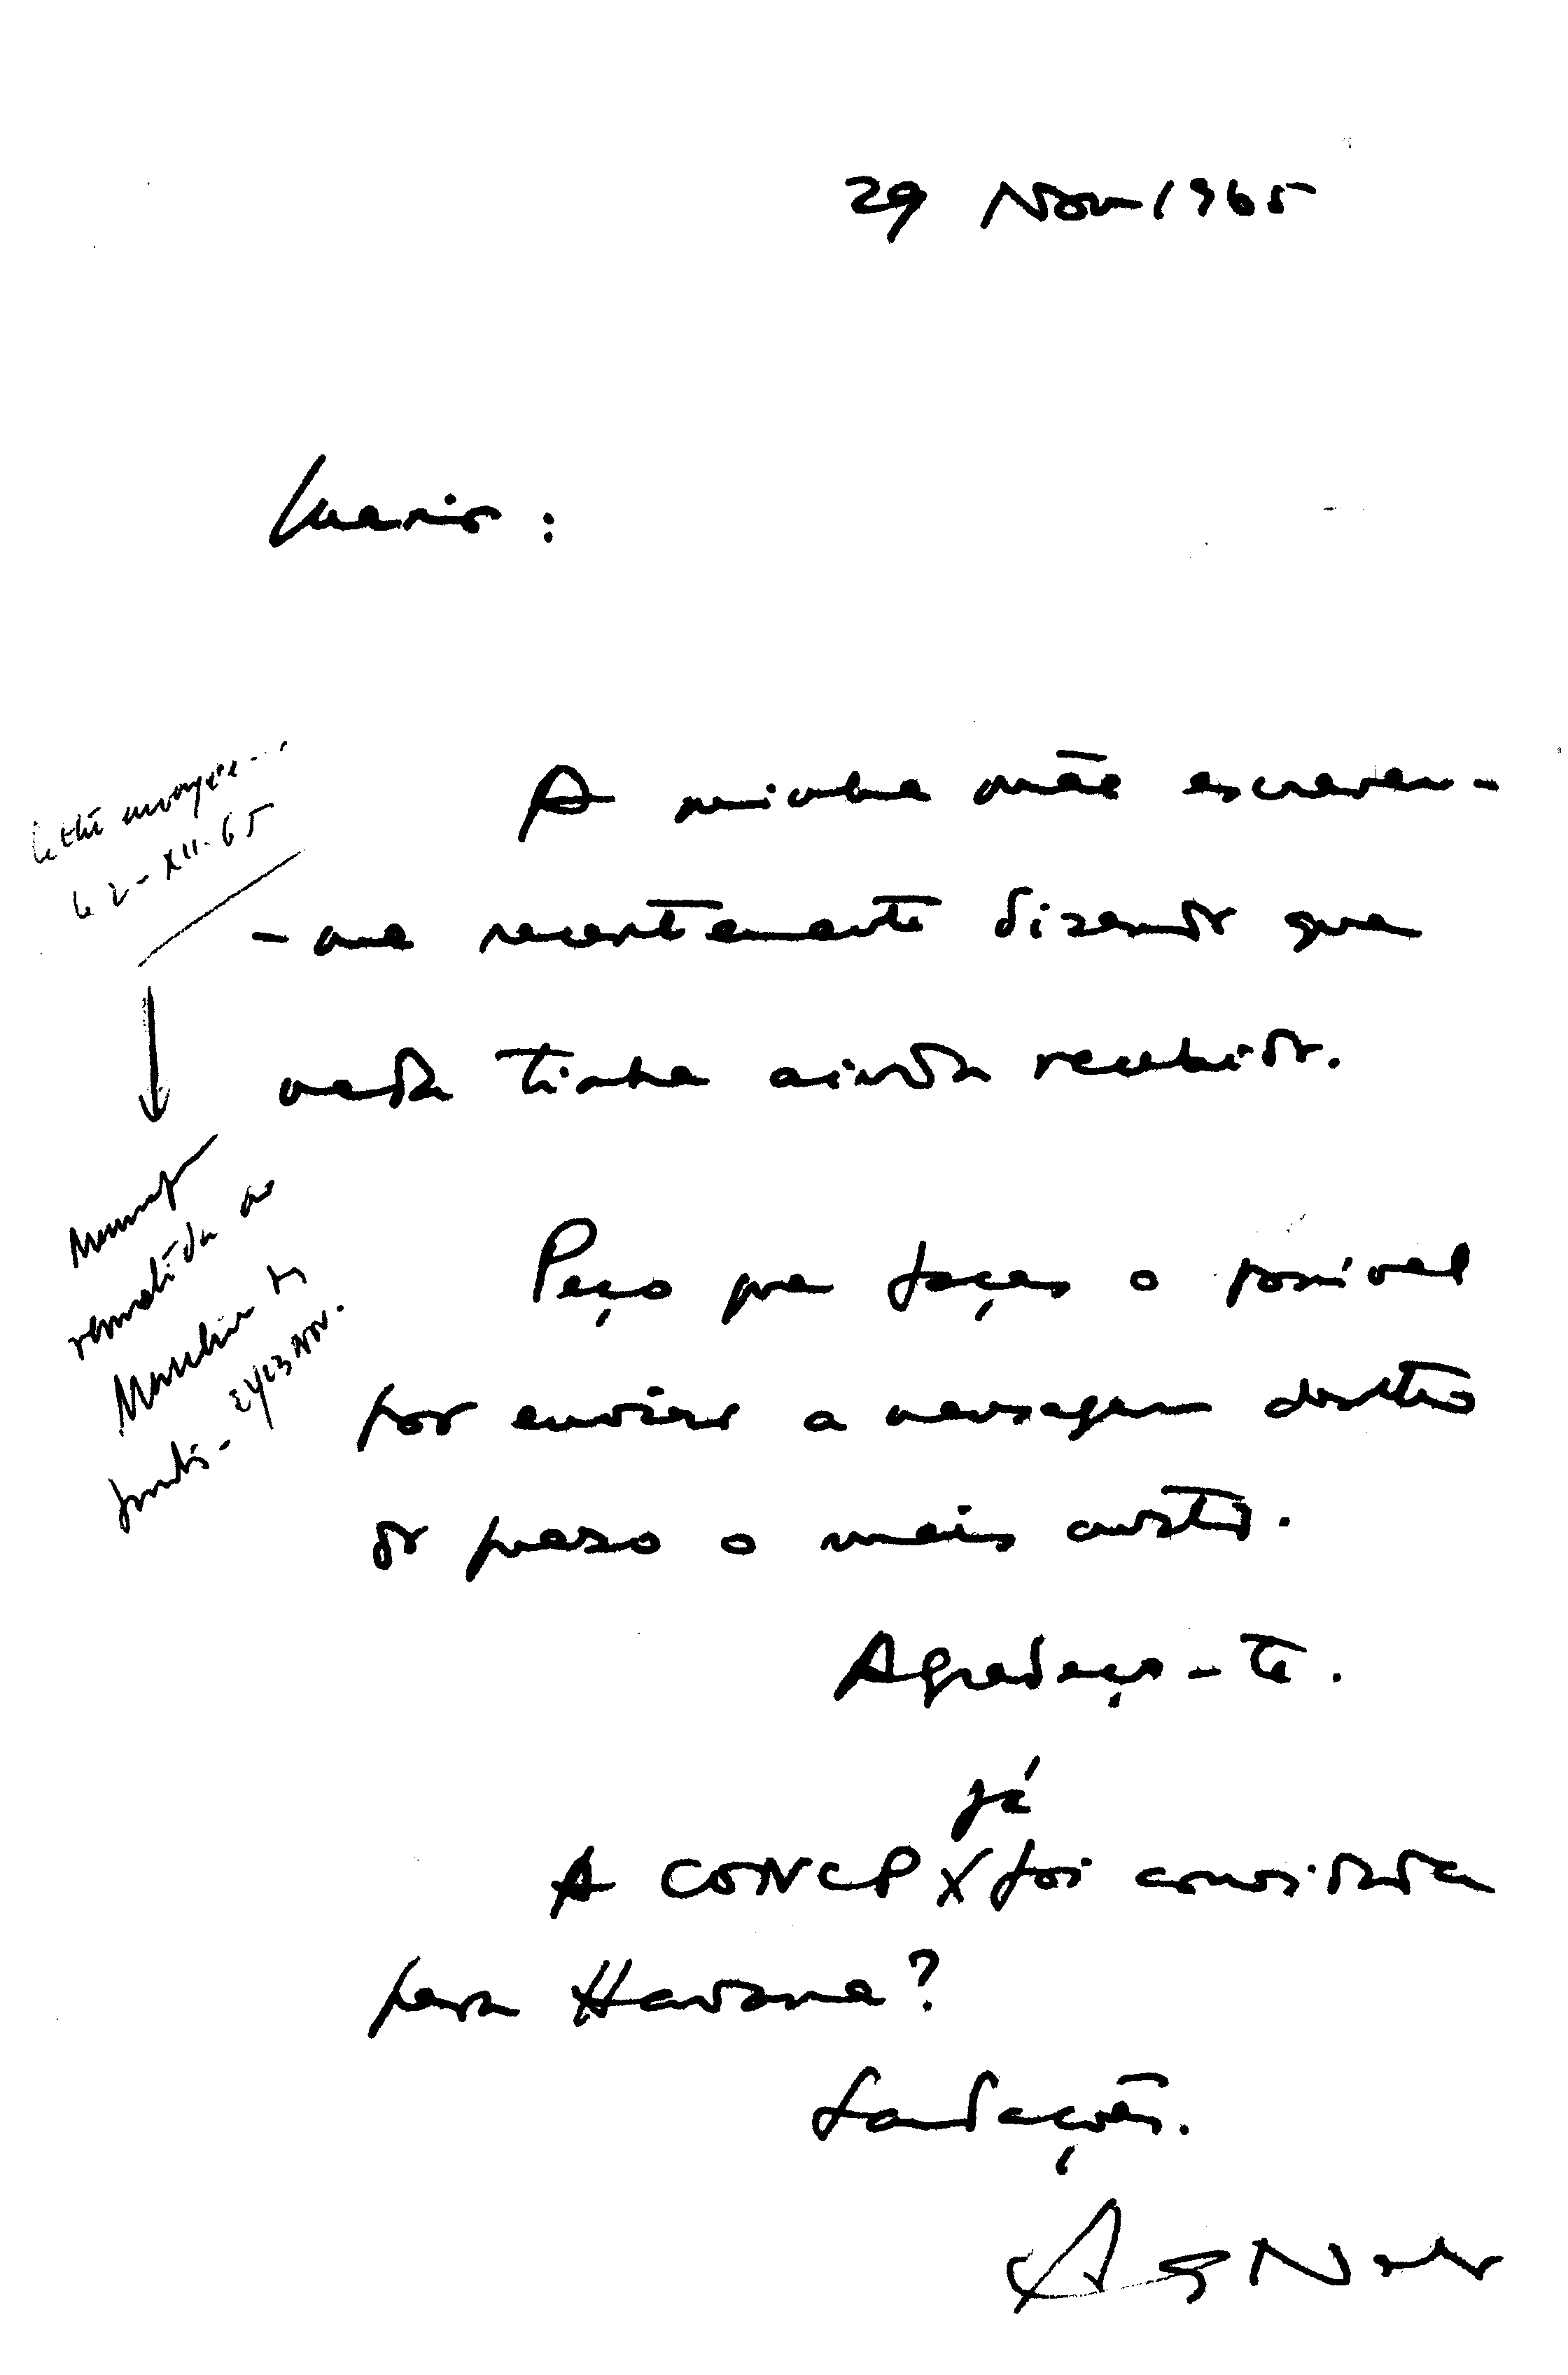 29 Nov 1965
Mario:
A minha mãe escreveu-
-me recentemente dizendo que
nada tinha ainda recebido.
Peço que faças o possível
por enviar a mensagem dentro
do prazo o mais curto.
Agradeço-te.
já
A CONCP X foi convidada
para Havana?
Saudações.
ANeto
lettre envoyée...
le 2-XII-65
remetida ao